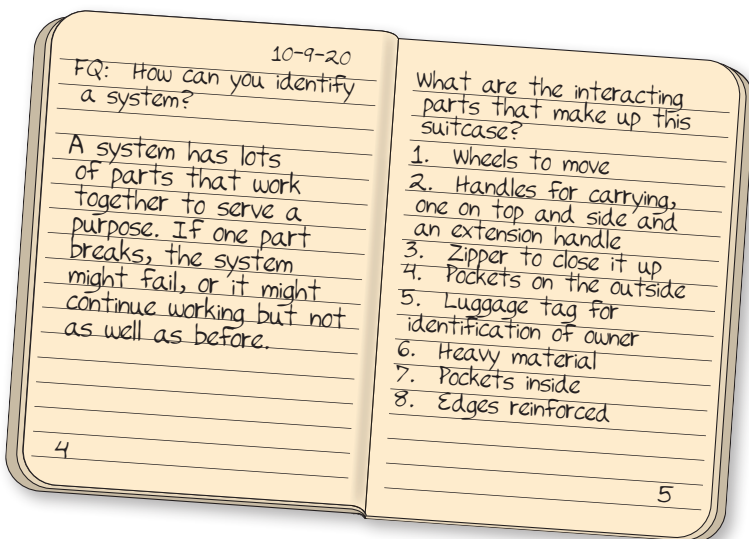 10-9-20
FQ: How can you identify
a system?
A system has lots
of parts that work
together to serve a
purpose. If one part
breaks, the system
might fail, or it might
continue working but not
as well as before.
4
What are the interacting
parts that make up this
suitcase?
1. Wheels to move
2. Handles for carrying,
one on top and side and
an extension handle
3. Zipper to close it up
4. Pockets on the outside
5. Luggage tag for
identification of owner
6. Heavy material
7. Pockets inside
8. Edges reinforced
5